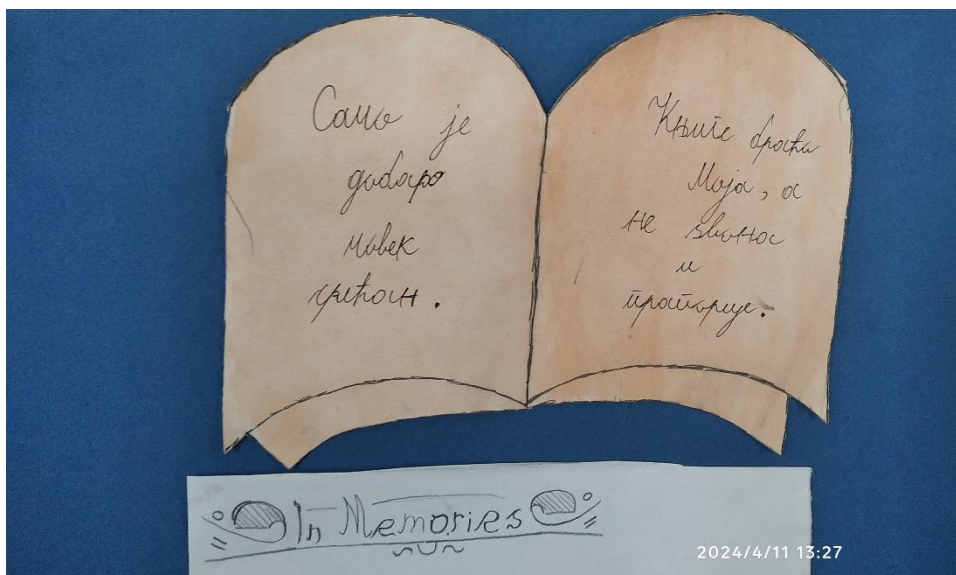 Само је
добар
човек
срећан.
Књиге браћо
Моја, а
не звона
и
прапорце.
In Memories
2024/4/11 13:27